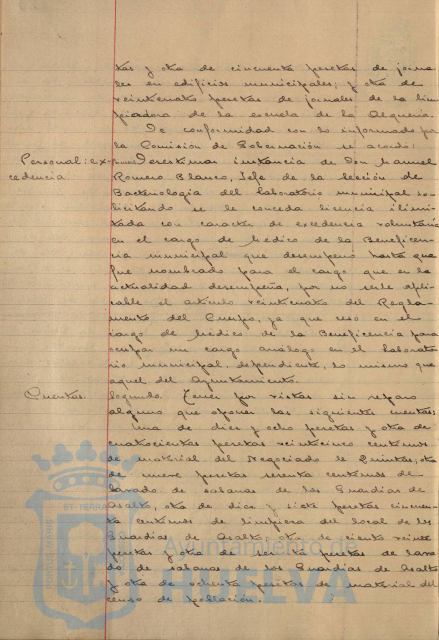 tas y otra de cincuenta pesetas de jorna-
les en edificios municipales; y otra de
veinticuatro pesetas de jornales de la lim-
piadora de la escuela de la Alquería.
De conformidad con lo informado por
la Comisión de Gobernación se acordó:
Personal: ex-
cedencia
Primero Desestimar instancia de Don Manuel
Romero Blanco, Jefe de la Sección de
Bacteriología del laboratorio municipal so-
licitando se le conceda licencia ilimi-
tada con caracter de excedencia voluntaria
en el cargo de Medico de la Beneficen-
cia municipal que desempeñó hasta que
fué nombrado para el cargo que en la
actualidad desempeña, por no serle apli-
cable el artículo veinticuatro del Regla-
mento del Cuerpo, ya que cesó en el
cargo de Medico de la Beneficencia para
ocupar un cargo análogo en el laborato-
rio municipal, dependiente, lo mismo que
aquel del Ayuntamiento.
Cuentas.
Segundo. Tener por vistas sin reparo
alguno que oponer las siguientes cuentas:
Una de diez y ocho pesetas y otra de
cuatrocientas pesetas veinticinco centimos
de material del Negociado de Quintas; otra
de nueve pesetas setenta centimos de
lavado de sabanas de los Guardias de
Asalto, otra de diez y siete pesetas cincuen-
ta centimos de limpieza del local de los
Guardias de Asalto, otra de ciento veinte
pesetas y otra de pesetas de lava-
do de sabanas de los Guardias de Asalto
y otra de ochenta pesetas de material del
censo de población.
Ayuntamiento de
HUELVA